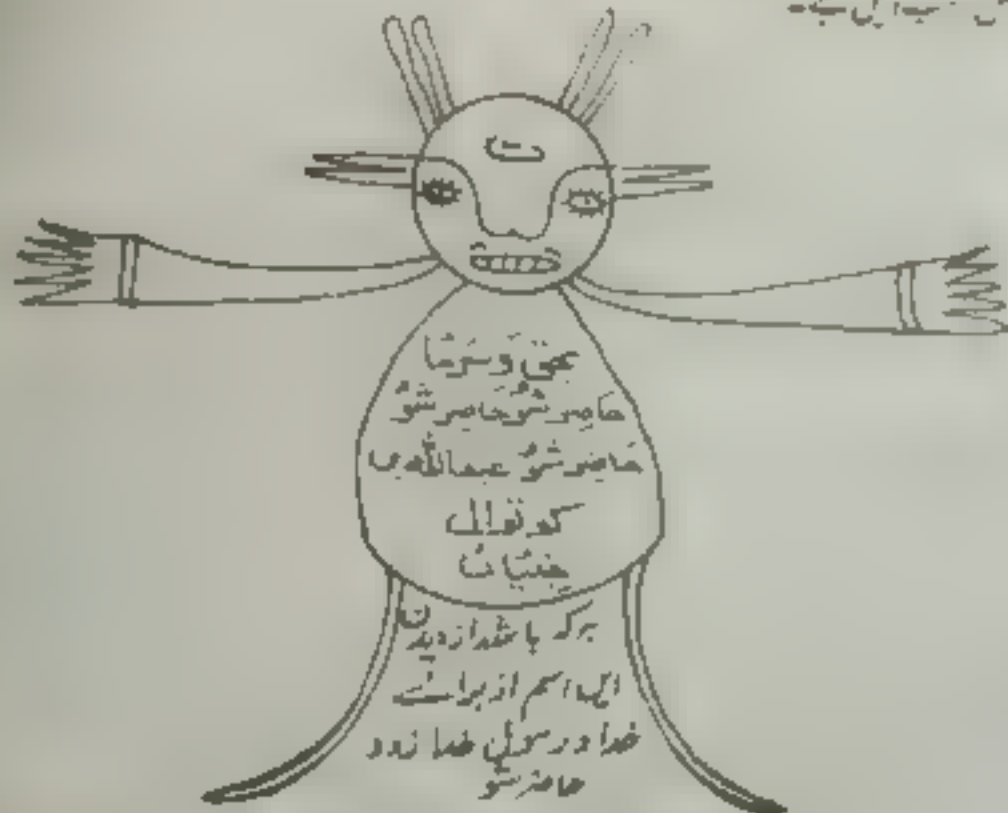 بحق وسوسًا
حَاضِر شَوْ حَاضِر شَوْ
حَاضِر شَوْ عبدالله
کوتوال
جنیات
ہرکہ باشد از دیدن
این اسم از برائے
خدا و رسول خدا زود
حاضر شو